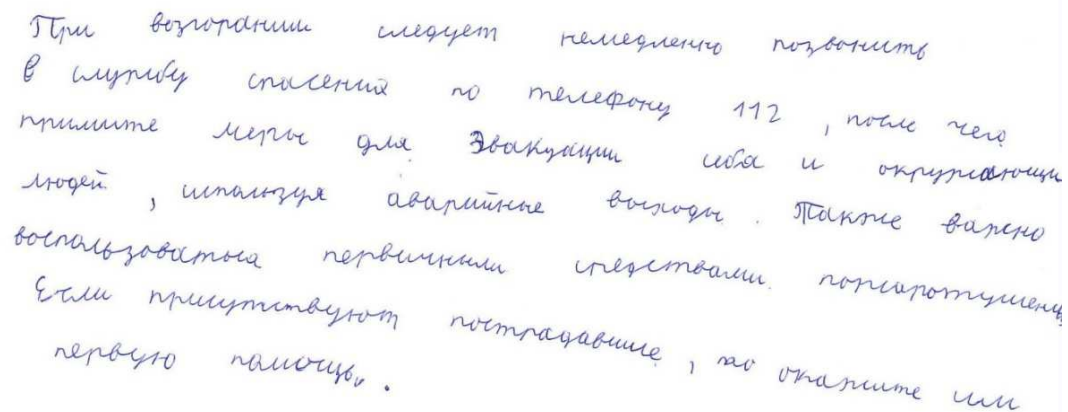 При возгорании следует немедленно позвонить
в службу спасения по телефону 112, после чего
примите меры для эвакуации себя и окружающи
людей, используя аварийные выходы. Также важно
воспользоваться первичными средствами пожаротушени
Если присутствуют пострадавшие, то окажите им
первую помощь.